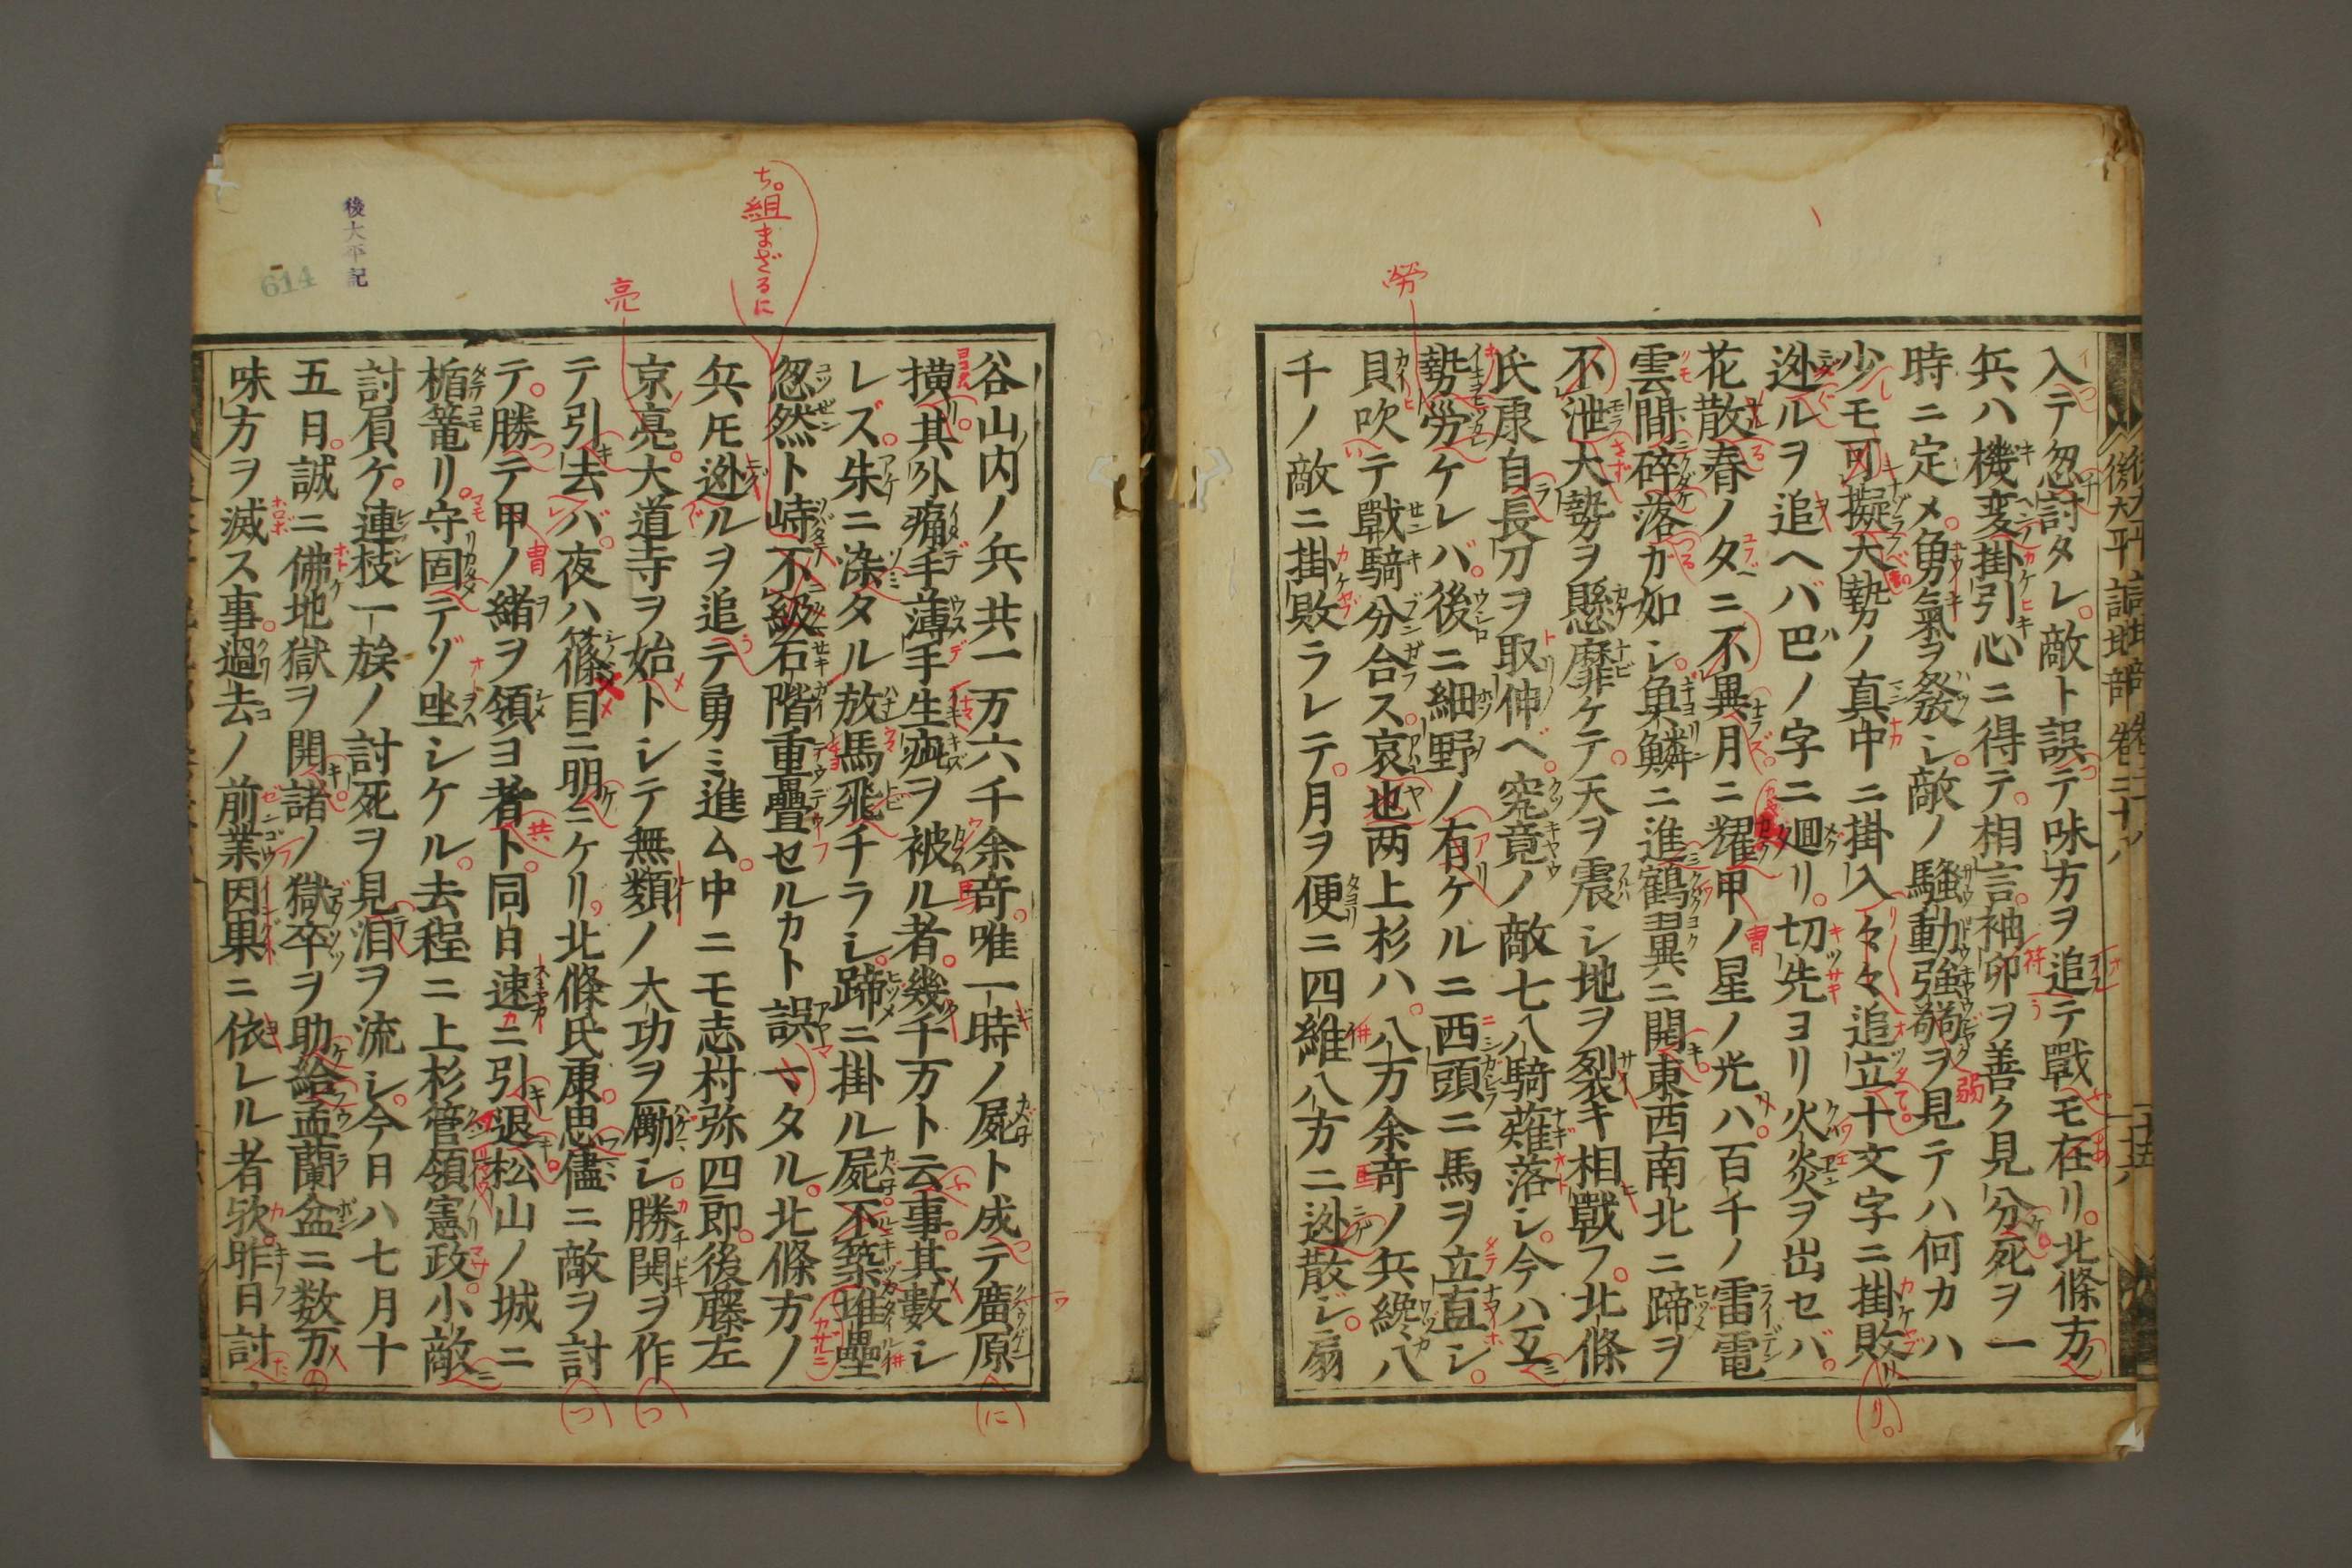 入テ忽討タレ敵ト誤テ味方ヲ追テ戰モ在リ北條方ノ
兵ハ機変掛引心ニ得テ相言袖卯ヲ善ク見分死ヲ一
時ニ定メ勇氣ヲ發シ敵ノ騒動強搦ヲ見テハ何カハ
少モ可擬大勢ノ真中ニ掛入々々追立十文字ニ掛敗
迯ルヲ追ヘバ巴ノ字ニ廻リ切先ヨリ火炎ヲ出セバ
花散春ノ夕ニ不異月ニ耀甲ノ星ノ光ハ百千ノ雷電
雲間碎落カ如シ魚鱗ニ進鶴翼ニ開東西南北ニ蹄ヲ
不泄大勢ヲ懸靡ケテ天ヲ震シ地ヲ裂キ相戰フ北條
氏康自長刀ヲ取伸べ究竟ノ敵七八騎薙落シ今ハ互
勢労ケレバ後ニ細野ノ有ケルニ西頭ニ馬ヲ立直シ
貝吹テ戰騎分合ス哀也两上杉ハ八万余竒ノ兵纔ニ八
千ノ敵ニ掛敗ラレテ月ヲ便ニ四維八方ニ迯散ジ扇
谷山内ノ兵共一万六千余竒唯一時ノ屍ト成テ廣原
横其外痛手薄手生疵ヲ被ル者幾千万ト云事其數シ
レズ朱ニ染タル放馬飛チラシ蹄ニ掛ル屍不築堆壘
忽然ト峙不級石階重疊セルカト誤マタル北條方ノ
兵𪜈迯ルヲ追テ勇ミ進ム中ニモ志村弥四郎後藤左
京亮大道寺ヲ始トシテ無類ノ大功ヲ勵シ勝鬨ヲ作
テ引去バ夜ハ篠目ニ明ニケリ北條氏康思儘ニ敵ヲ討
テ勝テ甲ノ緒ヲ領ヨ者ト同日速ニ引退松山ノ城ニ
楯篭リ守固テゾ坐シケル去程ニ上杉管領憲政小敵
討屓ケ連枝一族ノ討死ヲ見泪ヲ流シ今日ハ七月十
五日誠ニ佛地獄ヲ開諸ノ獄卒ヲ助給盂蘭盆ニ数万
味方ヲ滅ス事過去ノ前業因果ニ依レル者欤昨日討
後太平記地部 巻二十八
後太平記
614
労
ち。組まざるに
亮